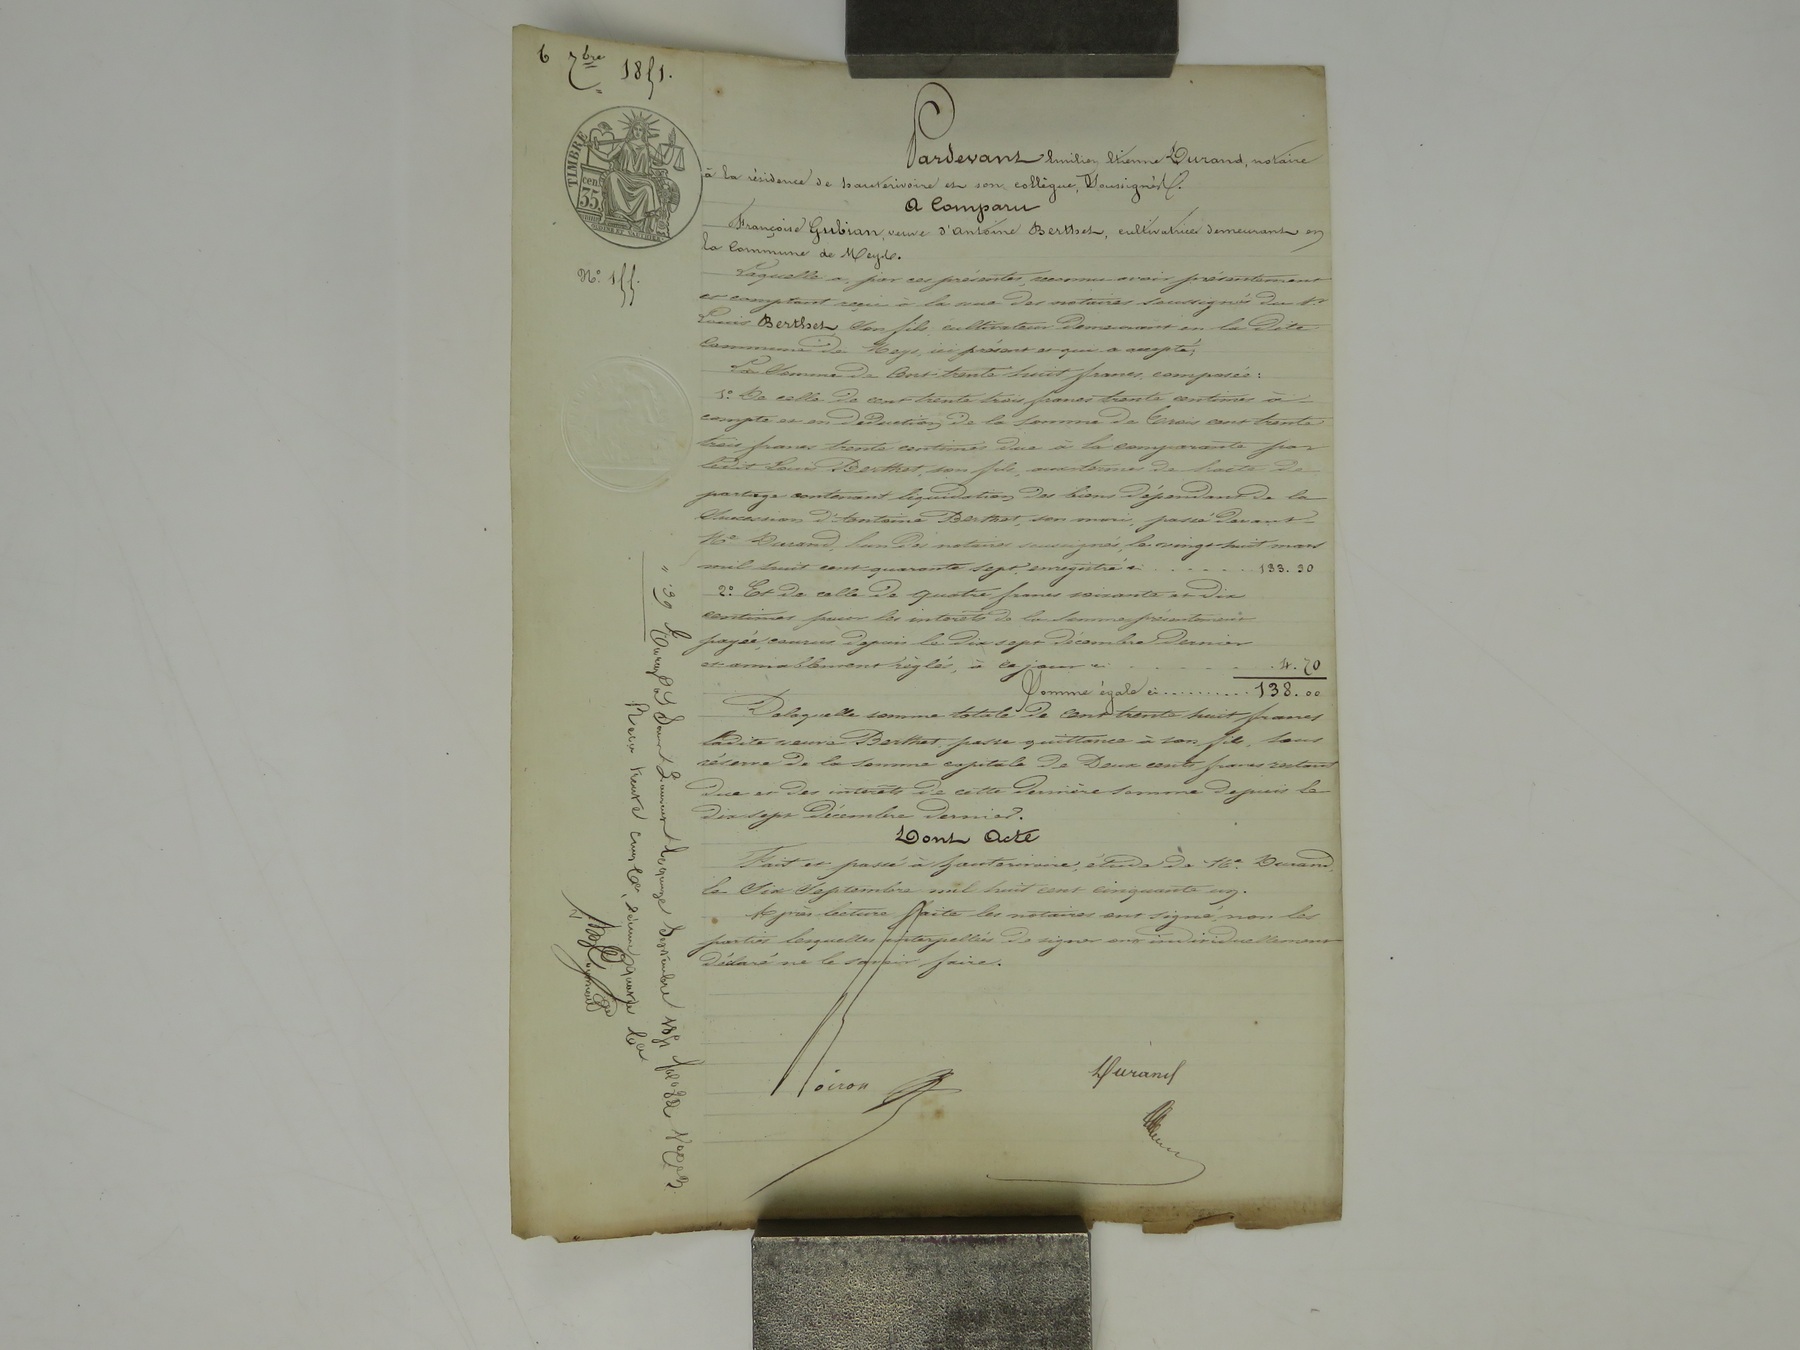 6 7bre 1851.
TIMBRE
35 cent.
N° 155.
Pardevant Emilien Etienne Durand, notaire
à la résidence de hauterivoire et son collègue, Soussignés.
A Comparu
Françoise Gubian, veuve d'Antoine Berthet, cultivatrice demeurant en
la Commune de Meys.
Laquelle a, par ces présentes, reconnu avoir présentement
et comptant reçu à la vue des notaires soussignés du Sr
Louis Berthet, son fils, cultivateur demeurant en la dite
Commune de Meys, ici présent et qui a accepté;
La Somme de Cent trente huit francs, composée:
1° De celle de cent trente trois francs trente centimes à
compte et en déduction de la somme de trois cent trente
trois francs trente centimes due à la comparante par
ledit Louis Berthet, son fils, aux termes de l'acte de
partage contenant liquidation des biens dépendant de la
Succession d'Antoine Berthet, son mari, passé devant
Me Durand, l'un des notaires soussignés, le vingt huit mars
mil huit cent quarante sept, enregistré ci . . . . . . 133. 30
2° Et de celle de quatre francs soixante et dix
centimes pour les intérêts de la Somme présentement
payée, courus depuis le dix sept décembre dernier
et amiablement réglés, à ce jour ci . . . . . . 4. 70
Somme égale ci . . . . . . . . . . 138. 00
De laquelle somme totale de Cent trente huit francs
ladite veuve Berthet, passe quittance à son fils, sous
réserve de la somme capitale de Deux cents francs restant
due et des intérêts de cette dernière somme depuis le
dix sept Décembre dernier.
Dont Acte
Fait et passé à hauterivoire, étude de Me Durand,
le Six Septembre mil huit cent cinquante un.
Après lecture faite les notaires ont signé, non les
parties lesquelles interpellées de signer ont individuellement
déclaré ne le savoir faire.
Noiron
Durand
septembre 1851